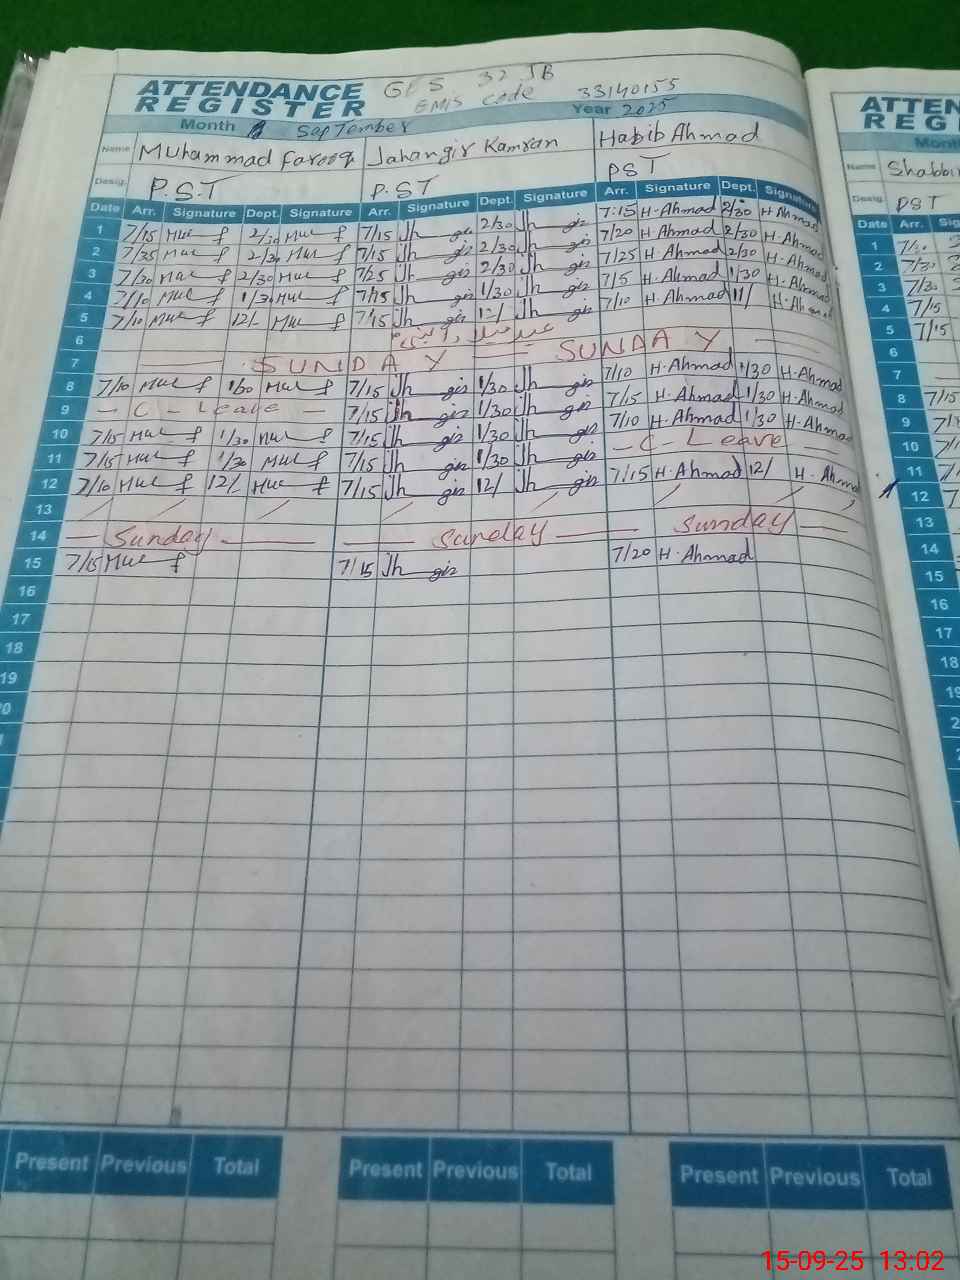 ATTENDANCE REGISTER
GES 32 JB
EMIS code 33140155
Month September Year 2025
Name Muhammad Farooq Jahangir Kamran Habib Ahmad
Desig. P.S.T P.ST PST
Date Arr. Signature Dept. Signature Arr. Signature Dept. Signature Arr. Signature Dept. Signature
1 7/15 2/30 7/15 Jh gir 2/30 Jh gir 7:15 H.Ahmad 2/30 H Ahmad
2 7/35 2/30 7/15 Jh gir 2/30 Jh gir 7/20 H.Ahmad 2/30 H.Ahmad
3 7/30 2/30 7/25 Jh gir 2/30 Jh gir 7/25 H.Ahmad 2/30 H.Ahmad
4 7/10 1/30 7/15 Jh gir 1/30 Jh gir 7/5 H.Ahmad 1/30 H.Ahmad
5 7/10 12/- 7/15 Jh gir 12/ Jh gir 7/10 H.Ahmad 11/ H.Ahmad
6 عید میلاد النبی
7 SUNDAY SUNDAY
8 7/10 1/30 7/15 Jh gir 1/30 Jh gir 7/10 H.Ahmad 1/30 H.Ahmad
9 - C - Leave - 7/15 Jh gir 1/30 Jh gir 7/15 H.Ahmad 1/30 H.Ahmad
10 7/15 1/30 7/15 Jh gir 1/30 Jh gir 7/10 H.Ahmad 1/30 H.Ahmad
11 7/15 1/30 7/15 Jh gir 1/30 Jh gir - C - Leave -
12 7/10 12/- 7/15 Jh gir 12/ Jh gir 7/15 H.Ahmad 12/ H.Ahmad
13
14 - Sunday - - Sunday - - Sunday -
15 7/15 7/15 Jh gir 7/20 H.Ahmad
16
17
18
19
Present Previous Total Present Previous Total Present Previous Total
ATTEN
REG
Name Shabbir
Desig. PST
Date Arr.
1
2 7/30
3 7/30
4 7/15
5 7/15
6
7
8 7/15
9
10
11
12
13
14
15
16
17
18
15-09-25 13:02